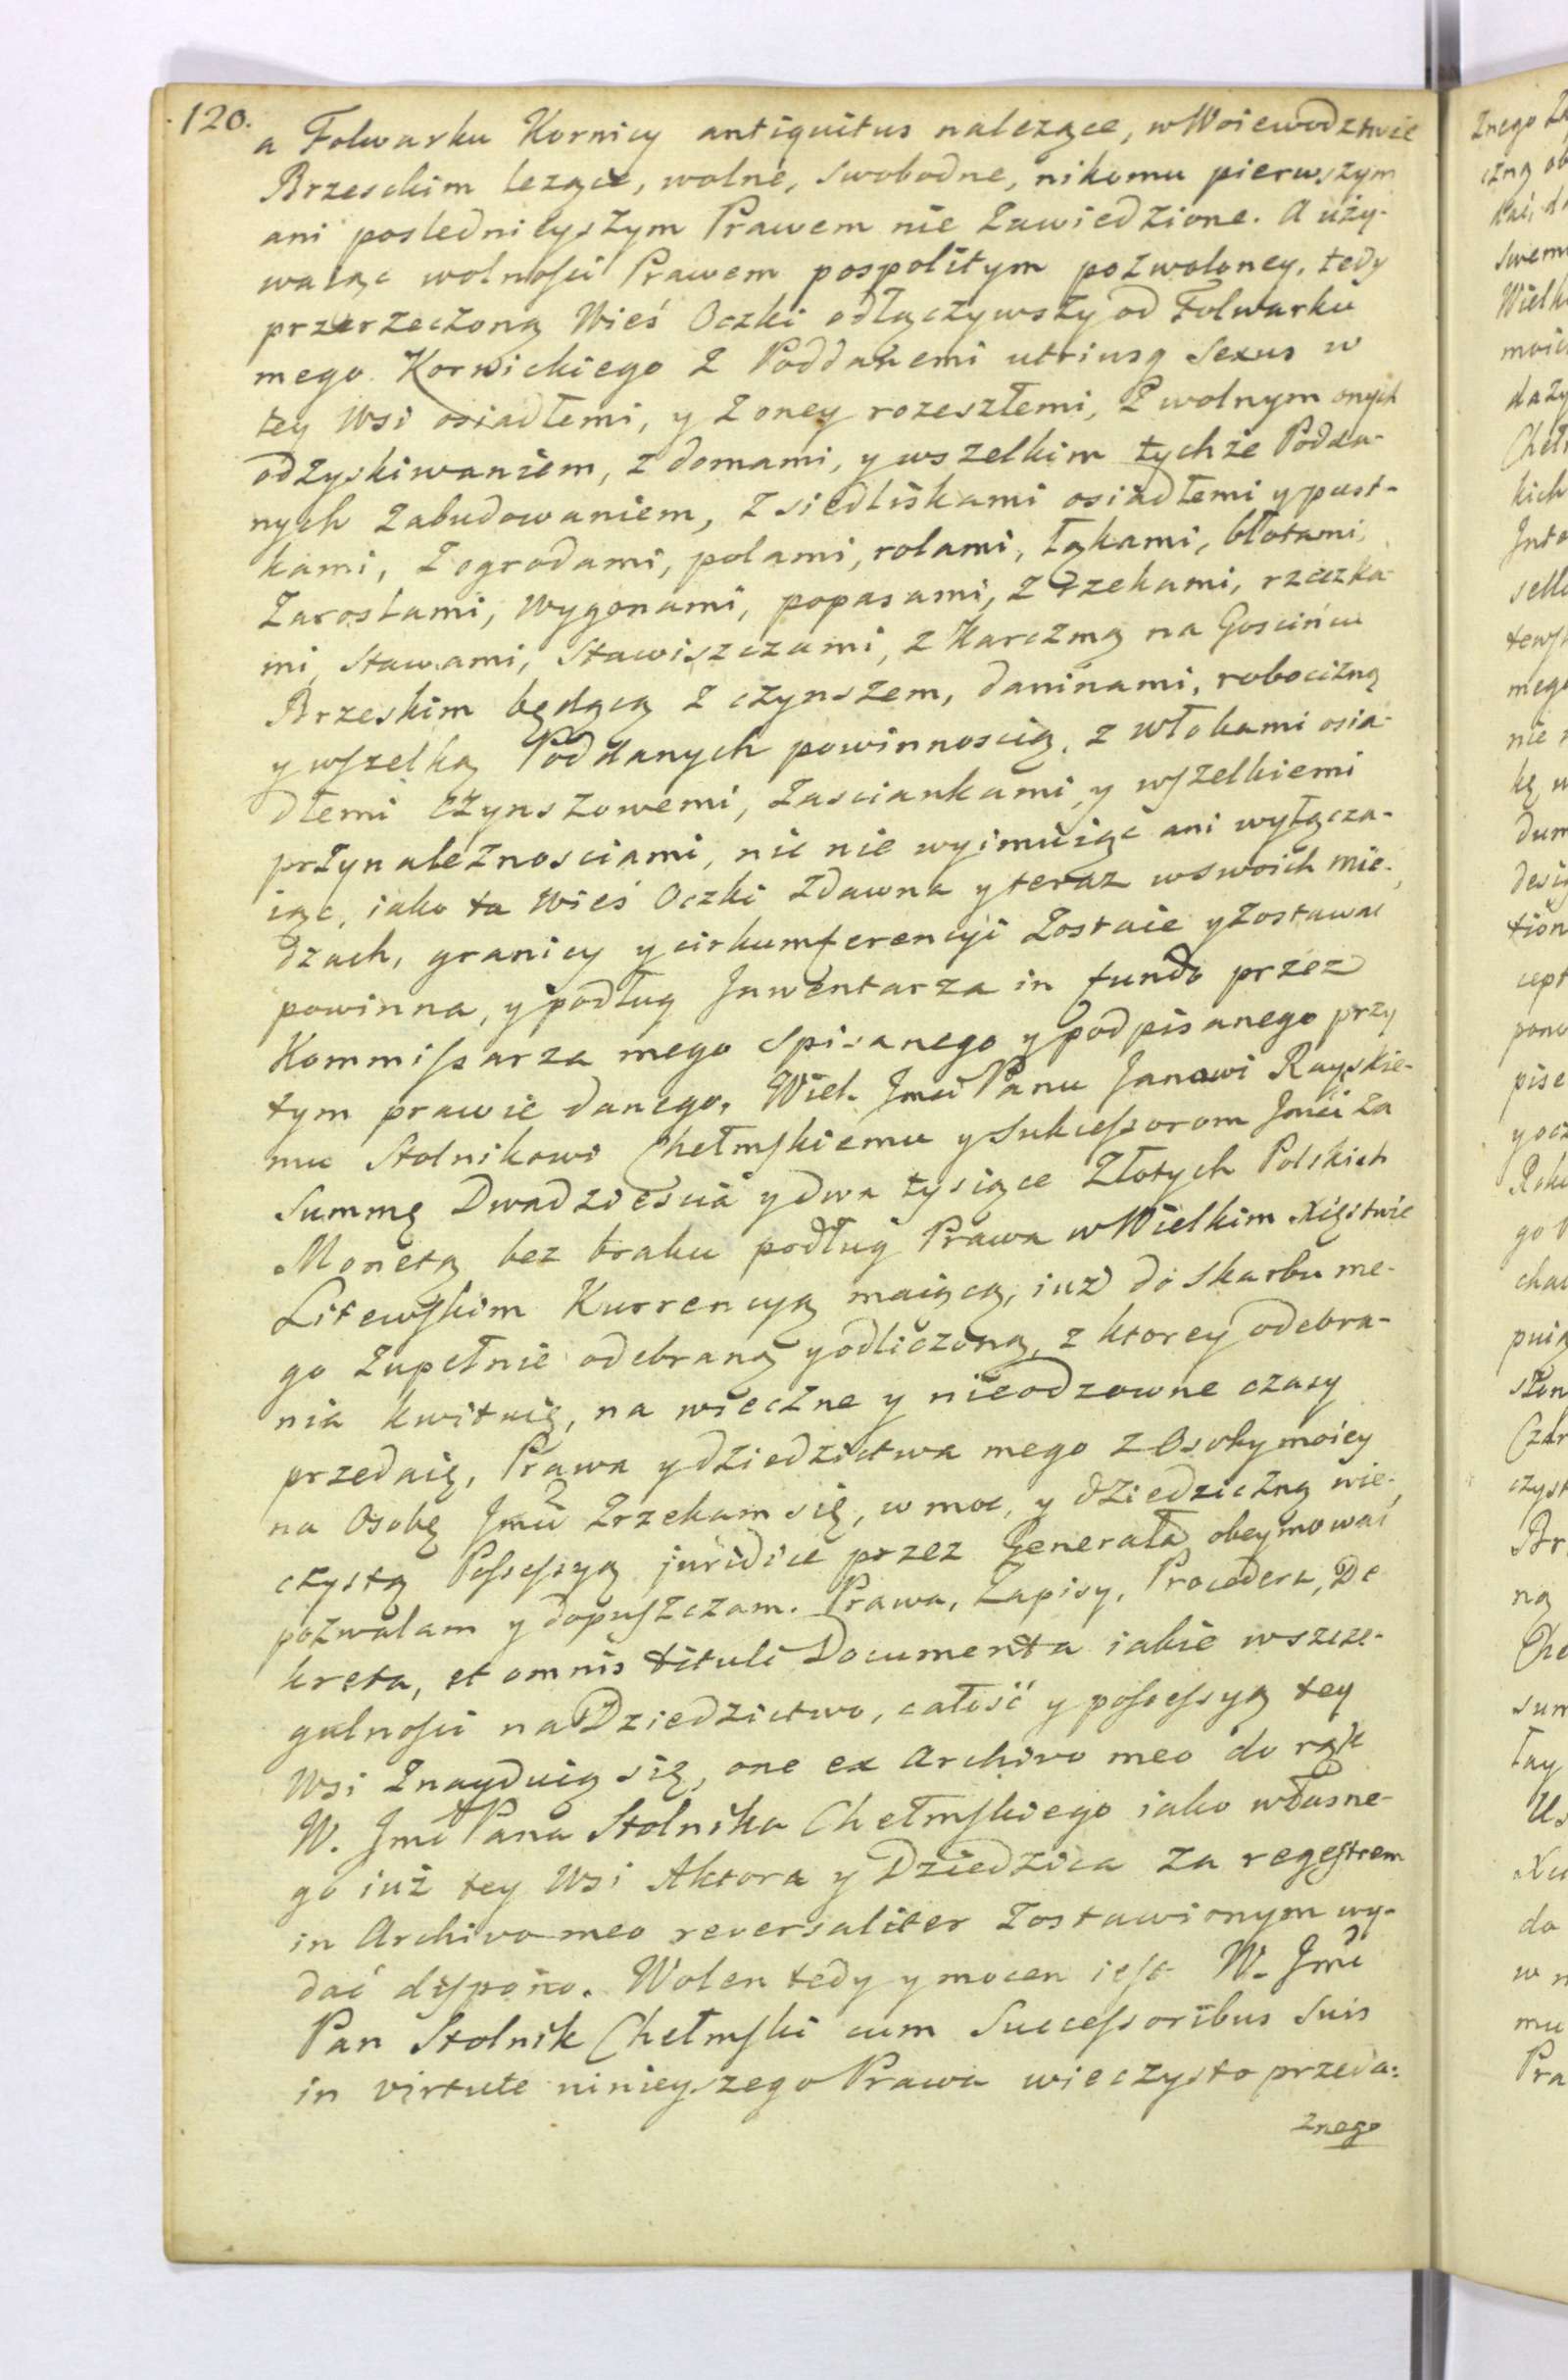 120.
a Folwarku Kornicy antiquitus nalezące, w Woiewodztwie
Brzesckim lezące, wolne, swobodne, nikomu pierwszym
ani posledniejszym Prawem nie Zawiedzione. A uży-
waiąc wolnosci Prawem pospolitym pozwoloney, tedy
przerzeczoną Wieś Oczki odłączywszy od Folwarku
mego Kornickiego z Poddanemi utriusq Sexus w
tey Wsi osiadłemi, y z oney rozeszłemi, z wolnym onych
odzyskiwaniem, z domami, y wszelkim tychże Podda-
nych Zabudowaniem, z siedliskami osiadłemi y pust-
kami, z ogrodami, polami, rolami, łąkami, błotami,
Zaroslami, wygonami, popasami, z rzekami, rzeczka-
mi, Stawami, Stawiszczami, z Karczmą na Goscińcu
Brzeskim będącą z czynszem, daninami, robocizną
y wszelką Poddanych powinnoscią, z włokami osia-
dłemi czynszowemi, Zasciankami y wszelkiemi
przynaleznosciami, nic nie wyimuiąc ani wyłącza-
iąc, iako ta Wieś Oczki Zdawna y teraz w swoich mie-
dzach, granicy y cirkumferencyi Zostaie y Zostawać
powinna, y podług Inwentarza in fundo przez
Kommissarza mego spisanego y podpisanego przy
tym prawie danego, Wiel. Jmci Panu Janowi Rayskie-
mu Stolnikowi Chełmskiemu y Sukcessorom Jmci za
Summę Dwadziescia y dwa tysiące Złotych Polskich
Monetą bez braku podług Prawa w Wielkim Xięstwie
Litewskim Kurrencyą maiącą, iuz do Skarbu me-
go Zupełnie odebraną y odliczoną, z ktorey odebra-
nia kwituię, na wieczne y nieodzowne czasy
przedaię, Prawa y dziedzictwa mego z Osoby moiey
na Osobę Jmci Zrzekam się, w moc, y dziedziczną wie-
czystą Possessyą juridice przez Generała obeymować
pozwalam y dopuszczam. Prawa, Zapisy, Procedera, De
kreta, et omnis tituli Documenta iakie w szcze-
gulnosci na Dziedzictwo, całość y possessyą tey
Wsi Znayduią się, one ex Archivo meo do rąk
W. Jmć Pana Stolnika Chełmskiego iako własne-
go iuż tey Wsi Aktora y Dziedzica za regestrem
in Archivo meo reversaliter Zostawionym wy-
dać dispono. Wolen tedy y mocen iest W. Jmć
Pan Stolnik Chełmski cum Successoribus suis
in virtute ninieyszego Prawa wieczysto przeda-
znego